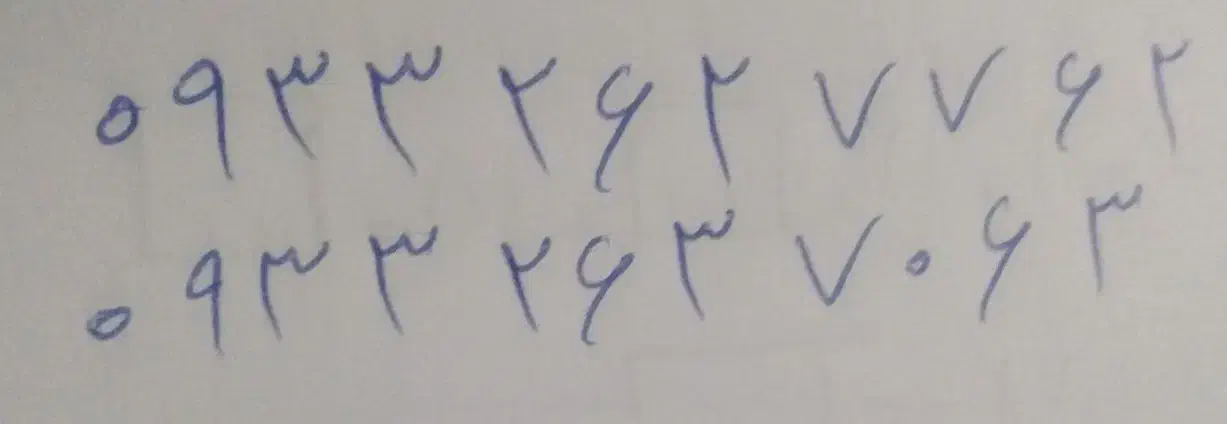 ۰۹۳۳۲۶۲۷۷۶۲
۰۹۳۳۲۶۳۷۰۶۳